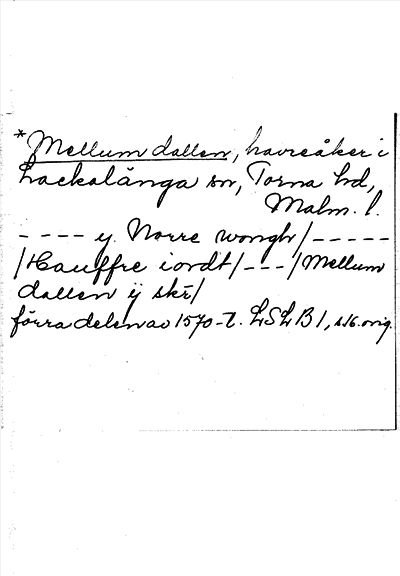 *Mellum dallen, havreåker i
Lackalänga sn, Torna hd,
Malm. l.
- - - - y. Norre wongh/- - - - -
/Hauffre iordt/- - -/Mellum
dallen ij skr/
förra delen av 1570-t. LSLB 1, s.16. orig.